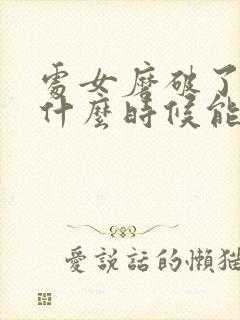 處女磨破了
什麼時候能
愛說話的懶猫